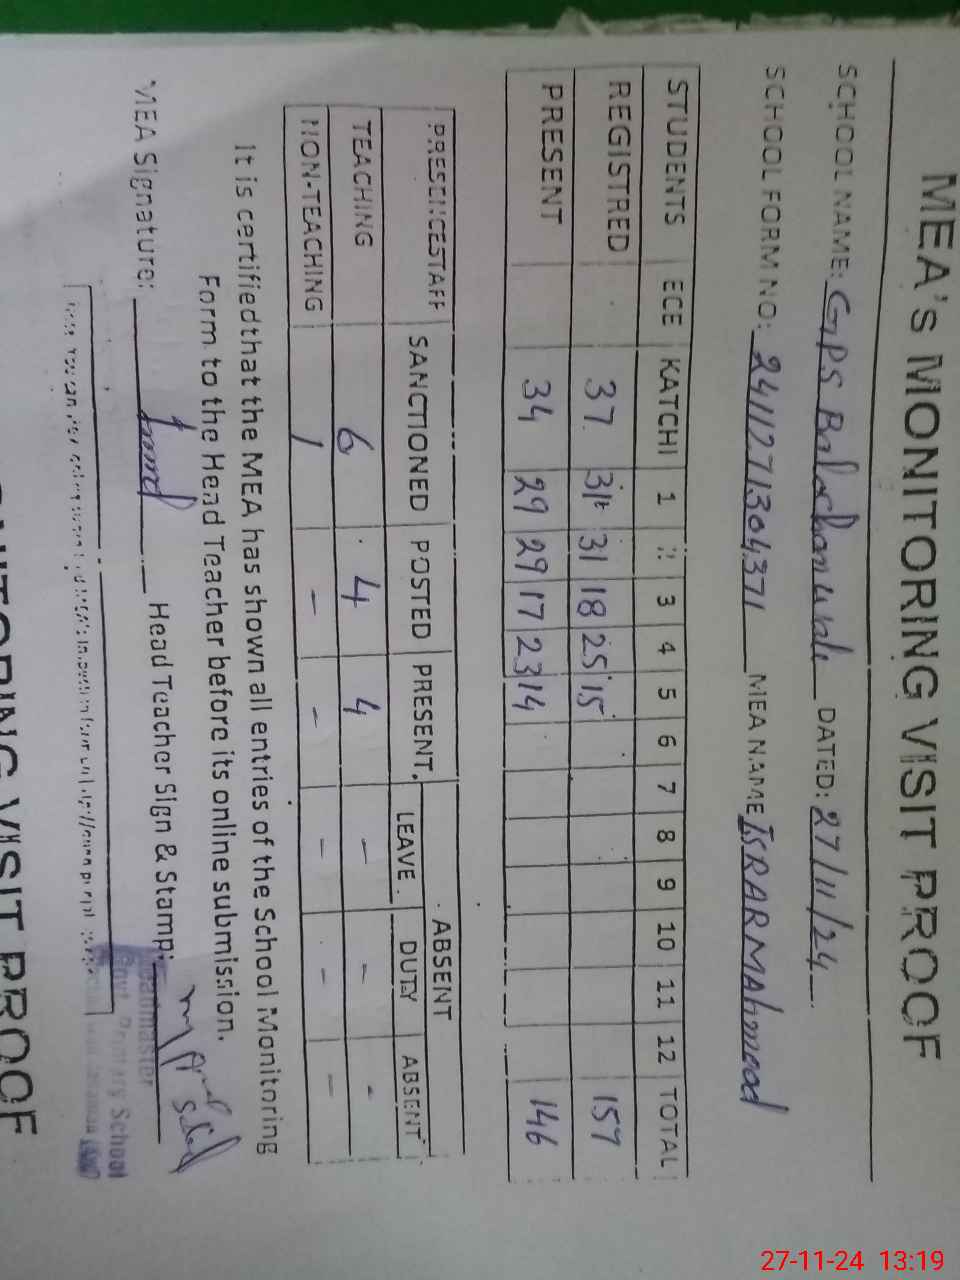 MEA's MONITORING VISIT PROOF
SCHOOL NAME: GPS Balochanwala DATED: 27/11/24
SCHOOL FORM NO: 2411271304371 MEA NAME ISRAR MAhmood
STUDENTS ECE KATCHI 1 2 3 4 5 6 7 8 9 10 11 12 TOTAL
REGISTRED 37 31 18 25 15 157
PRESENT 34 29 29 17 23 14 146
PRESENCESTAFF SANCTIONED POSTED PRESENT ABSENT
LEAVE DUTY ABSENT
TEACHING 6 4 4 - - -
NON-TEACHING 1 - - - - -
It is certifiedthat the MEA has shown all entries of the School Monitoring
Form to the Head Teacher before its online submission.
MEA Signature: Head Teacher Sign & Stamp:
Headmaster
Govt. Primary School
MONITORING VISIT PROOF
27-11-24 13:19